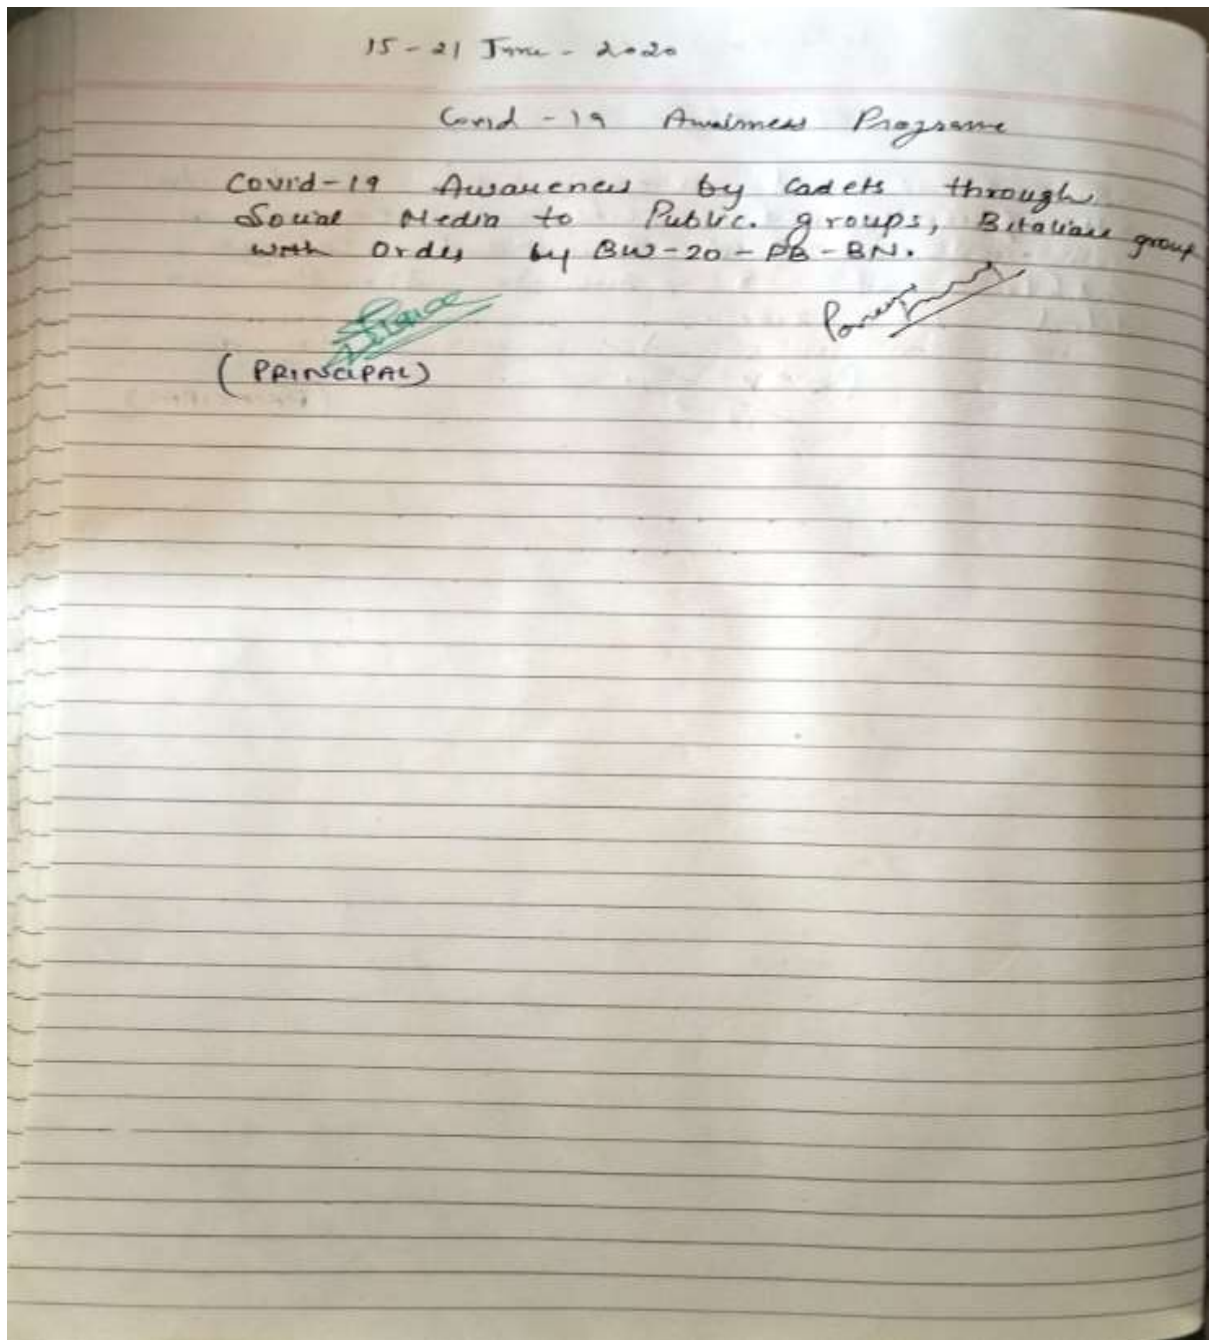 15 - 21 June - 2020
Covid - 19 Awairness Programe
Covid-19 Awareness by Cadets through
Social Media to Public. groups, group
with Order by BW-20-PB-BN.
(PRINCIPAL)